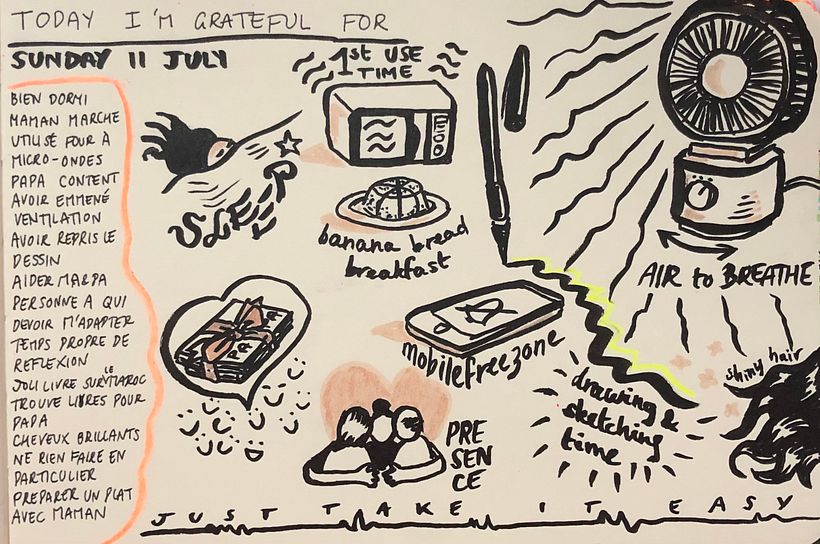 TODAY I'M GRATEFUL FOR
SUNDAY 11 JULY
BIEN DORMI
MAMAN MARCHE
UTILISÉ FOUR À
MICRO-ONDES
PAPA CONTENT
AVOIR EMMENÉ
VENTILATION
AVOIR REPRIS LE
DESSIN
AIDER MARPA
PERSONNE A QUI
DEVOIR M'ADAPTER
TEMPS PROPRE DE
REFLEXION
JOLI LIVRE SUR LE MAROC
TROUVE LIVRES POUR
PAPA
CHEVEUX BRILLANTS
NE RIEN FAIRE EN
PARTICULIER
PREPARER UN PLAT
AVEC MAMAN
SLEEP
1st USE
TIME
banana bread
breakfast
AIR to BREATHE
mobilefreezone
PRE
SEN
CE
drawing &
sketching
time !!
shiny hair
JUST TAKE IT EASY